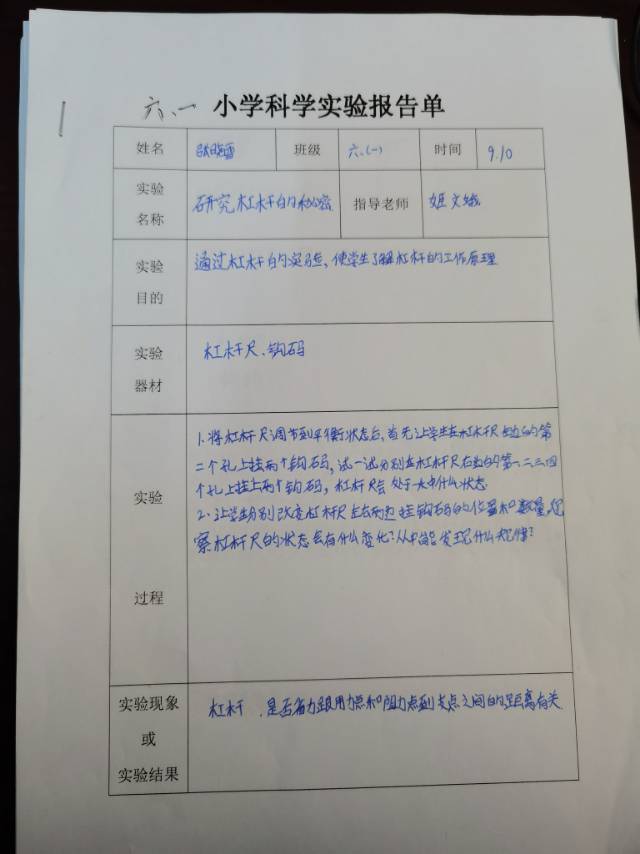 六、一 小学科学实验报告单
姓名 张晓雪 班级 六、(一) 时间 9.10
实验名称 研究杠杆的秘密 指导老师 姬文娥
实验目的 通过杠杆的实验,使学生了解杠杆的工作原理
实验器材 杠杆尺、钩码
实验过程
1、将杠杆尺调节到平衡状态后,首先让学生在杠杆尺左边的第
二个孔上挂两个钩码,试一试分别在杠杆尺右边的第一二三四
个孔上挂上两个钩码,杠杆尺会处于一种什么状态
2、让学生分别改变杠杆尺左右两边挂钩码的位置和数量,观
察杠杆尺的状态会有什么变化?从中能发现什么规律?
实验现象
或
实验结果
杠杆、是否省力跟用力点和阻力点到支点之间的距离有关